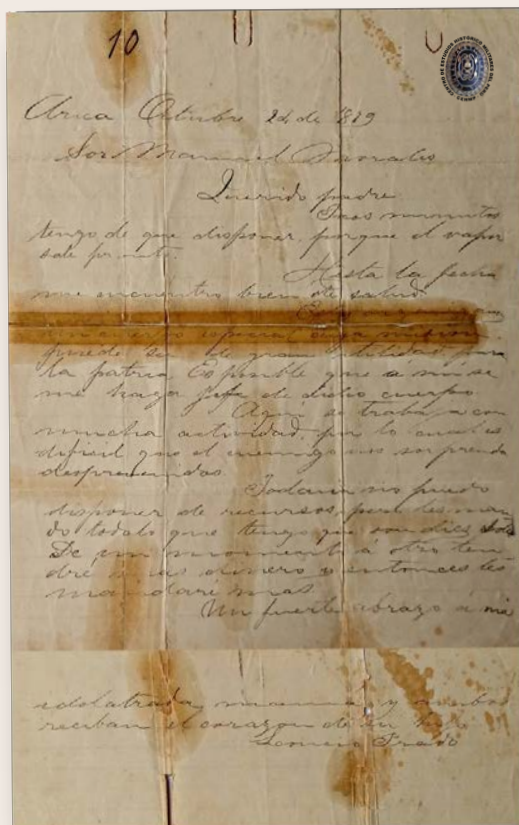 10
CENTRO DE ESTUDIOS HISTÓRICO MILITARES DEL PERÚ
Arica Octubre 24 de 1879
Sor Manuel Morales
Querido padre
Pocos momentos
tengo de que disponer, porque el vapor
sale pronto.
Hasta la fecha
me encuentro bien de salud.
un cuerpo especial cuya
puede ser de gran utilidad para
la patria Es posible que a mi se
me haga jefe de dicho cuerpo.
Aquí se trabaja con
mucha actividad, por lo cual es
dificil que el enemigo nos sorprenda
desprevenidos.
Todavia no puedo
disponer de recursos, pero les man
do todo lo que tengo que son diez
De un momento á otro ten
dré mas dinero y entonces les
mandaré mas.
Un fuerte abrazo a mi
idolatrada mamá y ambos
reciban el corazon de su hijo
Leoncio Prado